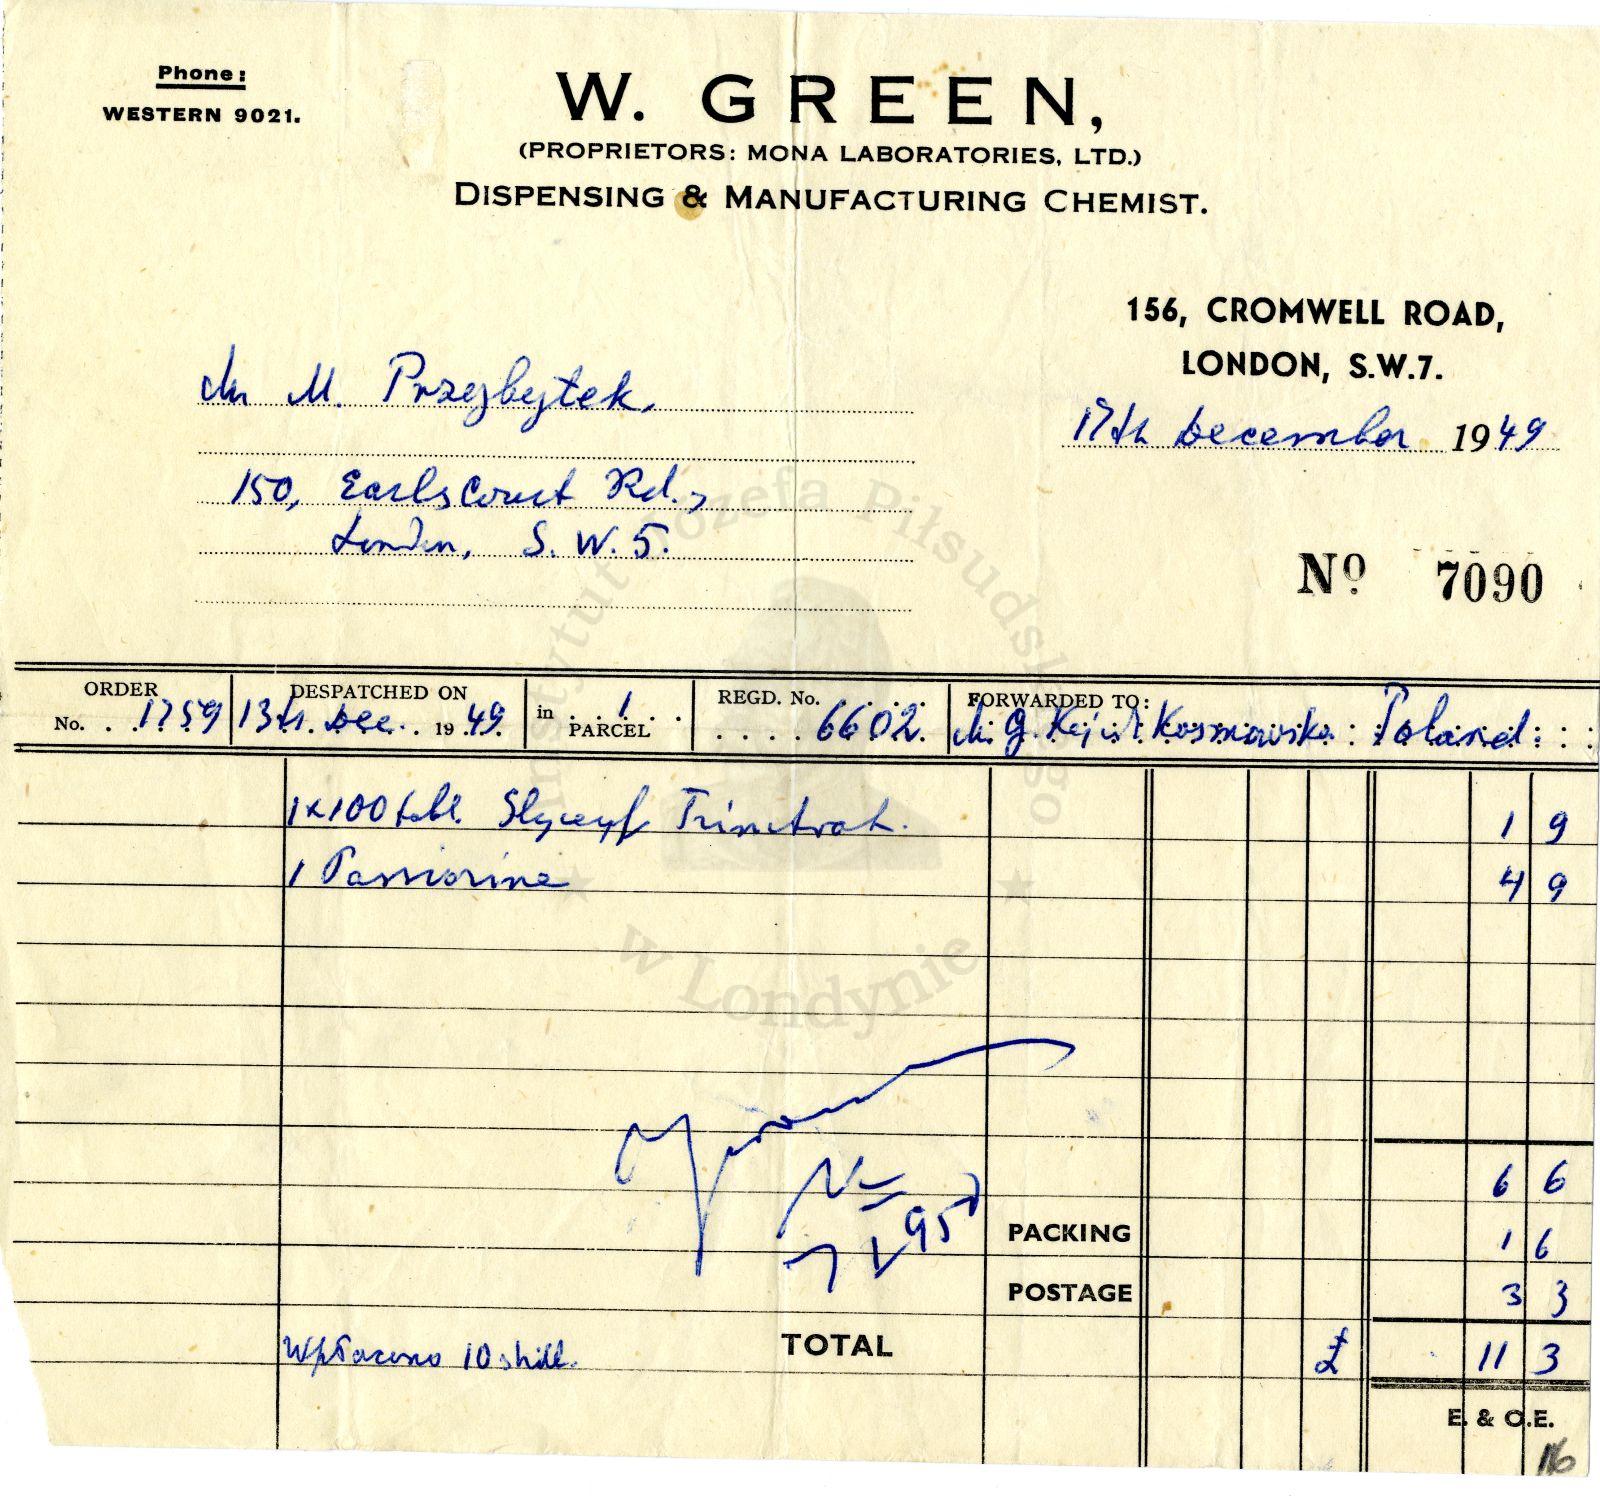 Phone:
WESTERN 9021.
W. GREEN,
(PROPRIETORS: MONA LABORATORIES, LTD.)
DISPENSING & MANUFACTURING CHEMIST.
156, CROMWELL ROAD,
LONDON, S.W.7.
17th December 1949
M. Przybytek,
150, Earls Court Rd.,
London, S. W. 5.
No 7090
ORDER No. 1759
DESPATCHED ON 13th Dec. 1949
in 1 PARCEL
REGD. No. 6602
FORWARDED TO: G. Poland
1x100 tabl. Trinitrat. 1 9
1 Passiorine 4 9
6 6
PACKING 1 6
POSTAGE 3 3
Wpłacono 10 shill. TOTAL £ 11 3
E. & O.E.
116
Instytut Józefa Piłsudskiego
w Londynie